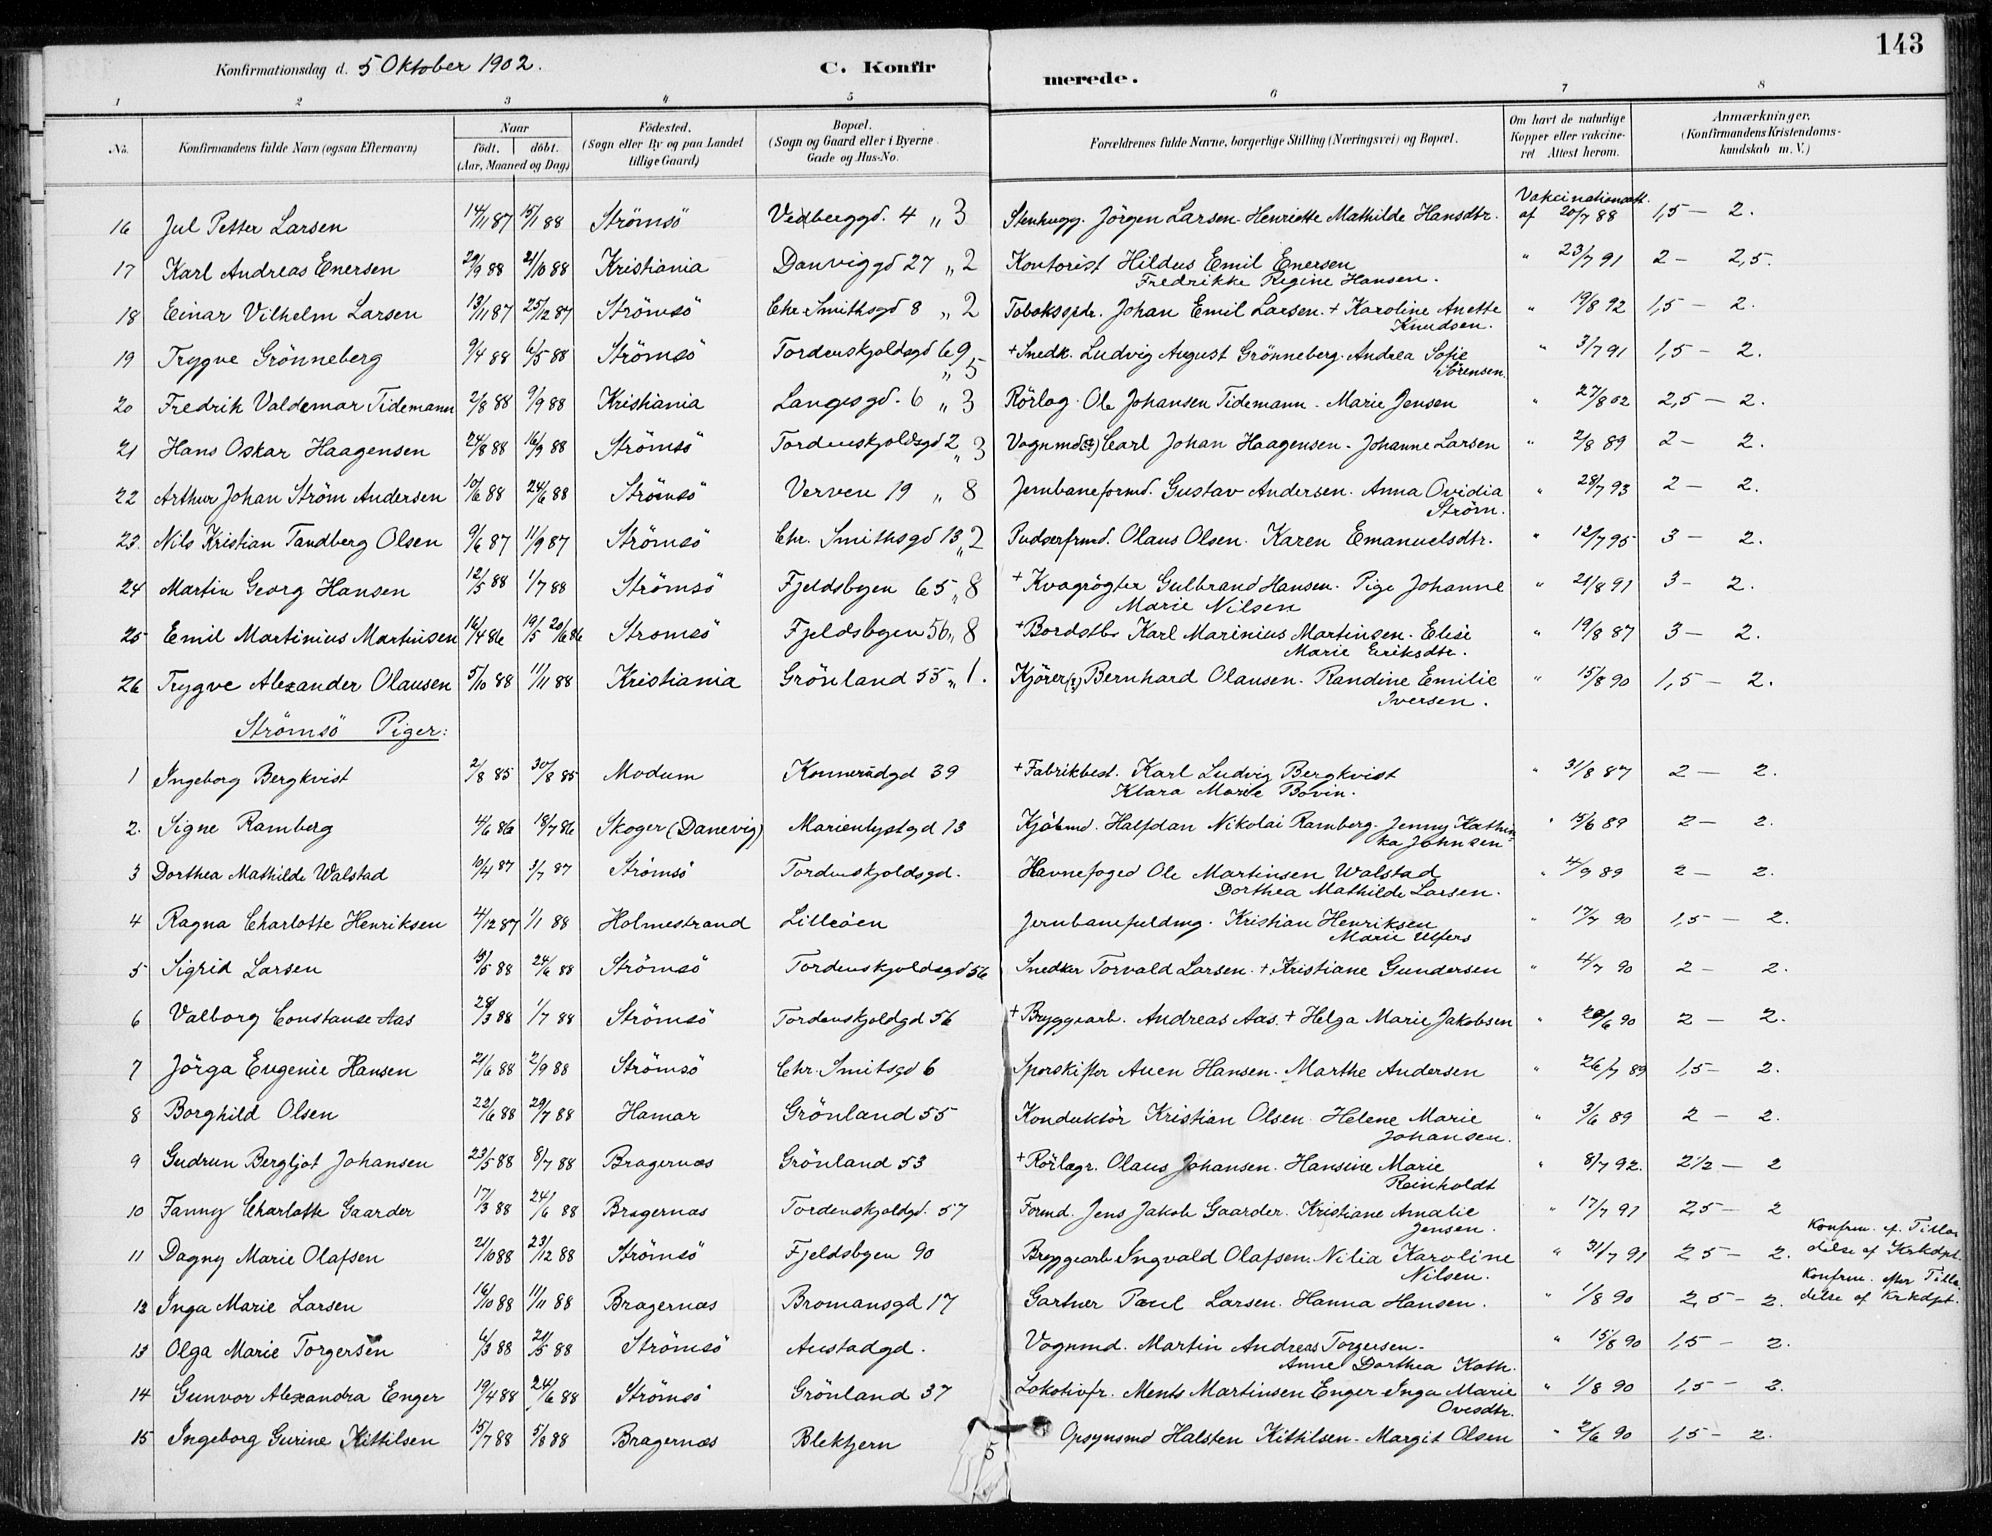 143
Konfirmationsdag d. 5 Oktober 1902. C. Konfirmerede.
1 2 3 4 5 6 7 8
No. Konfirmandens fulde Navn (ogsaa Efternavn) Naar født. døbt. (Aar, Maaned og Dag) Födested. (Sogn eller By og paa Landet tillige Gaard) Bopæl. (Sogn og Gaard eller i Byerne Gade og Hus-No. Forældrenes fulde Navne, borgerlige Stilling (Næringsvei) og Bopæl. Om havt de naturlige Kopper eller vakcineret Attest herom. Anmærkninger. (Konfirmandens Kristendomskundskab m. V.)
16 Jul Petter Larsen 14/11 87 15/1 88 Strömsö Vedberggd. 4 „ 3 Stenhugg. Jörgen Larsen - Henriette Mathilde Hansdtr. Vakcinationsatt. af 20/7 88 1,5 — 2.
17 Karl Andreas Enersen 29/9 88 21/10 88 Kristiania Danviggd 27 „ 2 Kontorist Hildus Emil Enersen " 23/7 91 2 — 2,5.
Fredrikke Regine Hansen.
18 Einar Vilhelm Larsen 13/11 87 25/12 87 Strömsö Chr. Smithsgd 8 „ 2 Tobakssp​dr. Johan Emil Larsen. + Karoline Anette " 19/8 92 1,5 — 2.
Knudsen.
19 Trygve Grönneberg 9/4 88 6/5 88 Strömsö Tordenskjoldsgd 69 „ 5 + Snedk. Ludvig August Grönneberg. Andrea Sofie " 3/7 91 1,5 — 2.
Sörensen.
20 Fredrik Valdemar Tidemann 2/8 88 9/9 88 Kristiania Langesgd. 6 „ 3 Rörlag. Ole Johansen Tidemann. Marie Jensen " 27/8 02 2,5 — 2.
21 Hans Oskar Haagensen 24/8 88 16/9 88 Strömsö Tordenskjoldsgd 2 „ 3 Vognmd. Carl Johan Haagensen - Johanne Larsen " 2/8 89 2 — 2.
22 Arthur Johan Ström Andersen 10/6 88 24/6 88 Strömsö Verven 19 „ 8 Jernbaneformd. Gustav Andersen. Anna Ovidia " 28/7 93 2 — 2.
Ström.
23. Nils Kristian Tandberg Olsen 9/6 87 11/9 87 Strömsö Chr. Smithsgd 13 „ 2 Pudserfrmd. Olaus Olsen. Karen Emanuelsdtr. " 12/7 95 3 — 2.
24 Martin Georg Hansen 12/5 88 1/7 88 Strömsö Fjeldsbyen 65 „ 8 + Kvagrögter Gulbrand Hansen. Pige Johanne " 21/8 91 3 — 2.
Marie Nilsen
25 Emil Martinius Martinsen 16/4 86 19/5 20/6 86 Stromsö Fjeldsbyen 56 „ 8 + Bordstbr Karl Marinius Martinsen. Elise " 19/8 87 3 — 2.
Marie Eriksdtr.
26 Trygve Alexander Olausen 5/10 88 11/11 88 Kristiania Grönland 55 „ 1. Kjörer Bernhard Olausen. Randine Emilie " 15/8 90 1,5 — 2.
Iversen.
Strömsö Piger:
1 Ingeborg Bergkvist 2/8 85 30/8 85 Modum Konnerudgd 39 + Fabrikbest. Karl Ludvig Bergkvist " 31/8 87 2 — 2.
Klara Marie Bovin.
2. Signe Ramberg 4/6 86 18/7 86 Skoger (Danevig) Marienlystgd 13 Kjöbmd. Halfdan Nikolai Ramberg. Jenny Kathin- " 15/6 89 2 — 2.
ka Johnsen
3 Dorthea Mathilde Walstad 10/4 87 3/7 87 Strömsö Tordenskjoldsgd. Havnefoged Ole Martinsen Walstad " 4/9 89 2 — 2.
Dorthea Mathilde Larsen.
4 Ragna Charlotte Henriksen 4/12 87 1/1 88 Holmestrand Lilleöen Jernbanefuldmg. Kristian Henriksen " 17/7 90 1,5 — 2.
Marie Ulfers
5 Sigrid Larsen 13/5 88 24/6 88 Strömsö Tordenskjoldsgd 56 Snedker Torvald Larsen. + Kristiane Gundersen " 4/7 90 2 — 2.
6 Valborg Constanse Aas 28/3 88 1/7 88 Strömsö Tordenskjoldgd 56 + Bryggearb. Andreas Aas. + Helga Marie Jakobsen " 20/6 90 2 — 2.
7 Jörga Eugenie Hansen 21/6 88 2/9 88 Strömsö Chr. Smitsgd 6 Sporskifter Auen Hansen. Marthe Andersen " 26/7 89 1,5 — 2.
8 Borghild Olsen 22/6 88 29/7 88 Hamar Grönland 55 Konduktör Kristian Olsen. Helene Marie " 3/6 89 2 — 2.
Johansen.
9 Gudrun Bergljot Johansen 23/5 88 8/7 88 Bragernæs Grönland 53 + Rörlægr. Olaus Johansen. Hansine Marie " 8/7 92. 2 1/2 — 2
Reinholdt
10 Fanny Charlotte Gaarder 17/3 88 24/6 88 Bragernæs Tordenskjoldgd. 57 Formd. Jens Jakob Gaarder. Kristiane Amalie " 17/7 91 2,5 — 2
Jensen.
11 Dagny Marie Olafsen 21/10 88 23/12 88 Strömsö Fjeldsbyen 90 Bryggearb Ingvald Olafsen. Nilia Karoline " 31/7 91 2 5 — 2. Konfrm. ef. Tilladelse af Krkdpt.
Nilsen.
12 Inga Marie Larsen 16/10 88 11/11 88 Bragernæs Bromansgd 17 Gartner Paul Larsen. Hanna Hansen. " 1/8 90 2,5 — 2. Konfrm. efter Tilladelse af Krkdpt.
13 Olga Marie Torgersen 6/3 88 21/5 88 Strömsö Austadgd. Vognmd. Martin Andreas Torgersen. " 15/8 90 1,5 — 2.
Anne Dorthea Kath.
14 Gunvor Alexandra Enger 19/4 88 24/6 88 Strömsö Grönland 37 Lokotivfr. Ments Martinsen Enger - Inga Marie " 1/8 90 1,5 — 2.
Ovesdtr.
15 Ingeborg Gurine Kittilsen 15/7 88 5/8 88 Bragernæs Blektjern Opsynsmd Halsten Kittilsen - Margit Olsen " 2/6 90 1,5 — 2.
5